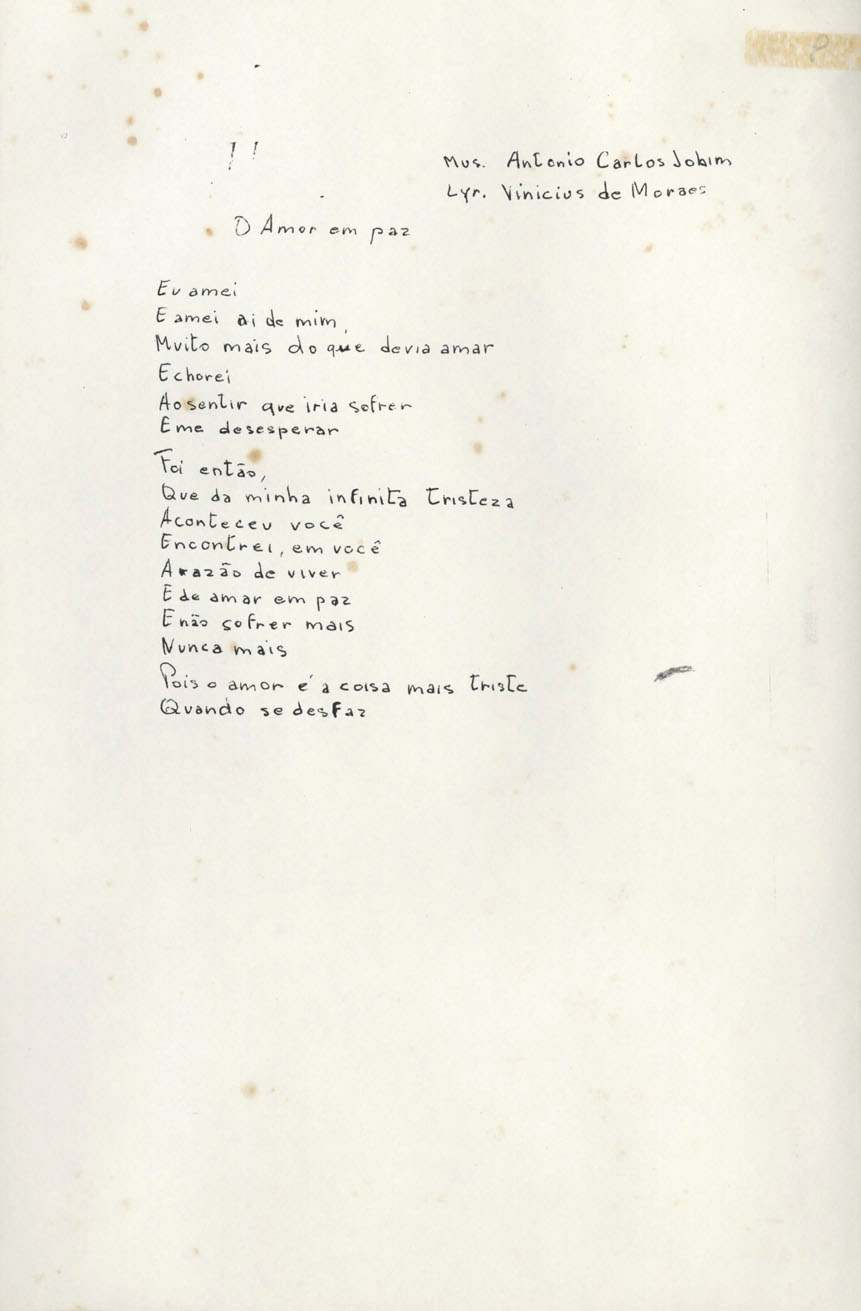 P
!!
Mus. Antonio Carlos Jobim
Lyr. Vinicius de Moraes
O Amor em paz
Eu amei
E amei ai de mim,
Muito mais do que devia amar
E chorei
Ao sentir que iria sofrer
E me desesperar
Foi então,
Que da minha infinita tristeza
Aconteceu você
Encontrei, em você
A razão de viver
E de amar em paz
E não sofrer mais
Nunca mais
Pois o amor é a coisa mais triste
Quando se desfaz